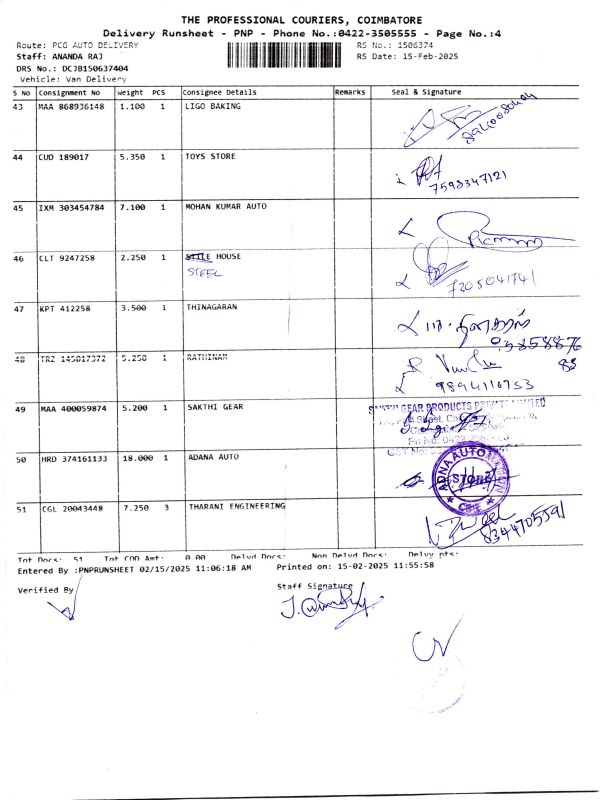 THE PROFESSIONAL COURIERS, COIMBATORE
Delivery Runsheet - PNP - Phone No.:0422-3505555 - Page No.:4
Route: PCG AUTO DELIVERY RS No.: 1506374
Staff: ANANDA RAJ RS Date: 15-Feb-2025
DRS No.: DCJB150637404
Vehicle: Van Delivery
S No Consignment No Weight PCS Consignee Details Remarks Seal & Signature
43 MAA 868936148 1.100 1 LIGO BAKING
44 CUD 189017 5.350 1 TOYS STORE
7598347121
45 IXM 303454784 7.100 1 MOHAN KUMAR AUTO
46 CLT 9247258 2.250 1 STILE HOUSE
STEEL 7205041741
47 KPT 412258 3.500 1 THINAGARAN
48 TRZ 145817372 5.250 1 RATHINAM
9894110753
49 MAA 400059874 5.200 1 SAKTHI GEAR
GEAR PRODUCTS PRIVATE LIMITED
50 HRD 374161133 18.000 1 ADANA AUTO
STORE
51 CGL 20043448 7.250 3 THARANI ENGINEERING
8344705591
Tot Docs: 51 Tot COD Amt: 0.00 Delvd Docs: Non Delvd Docs: Delvy pts:
Entered By :PNPRUNSHEET 02/15/2025 11:06:18 AM Printed on: 15-02-2025 11:55:58
Verified By Staff Signature